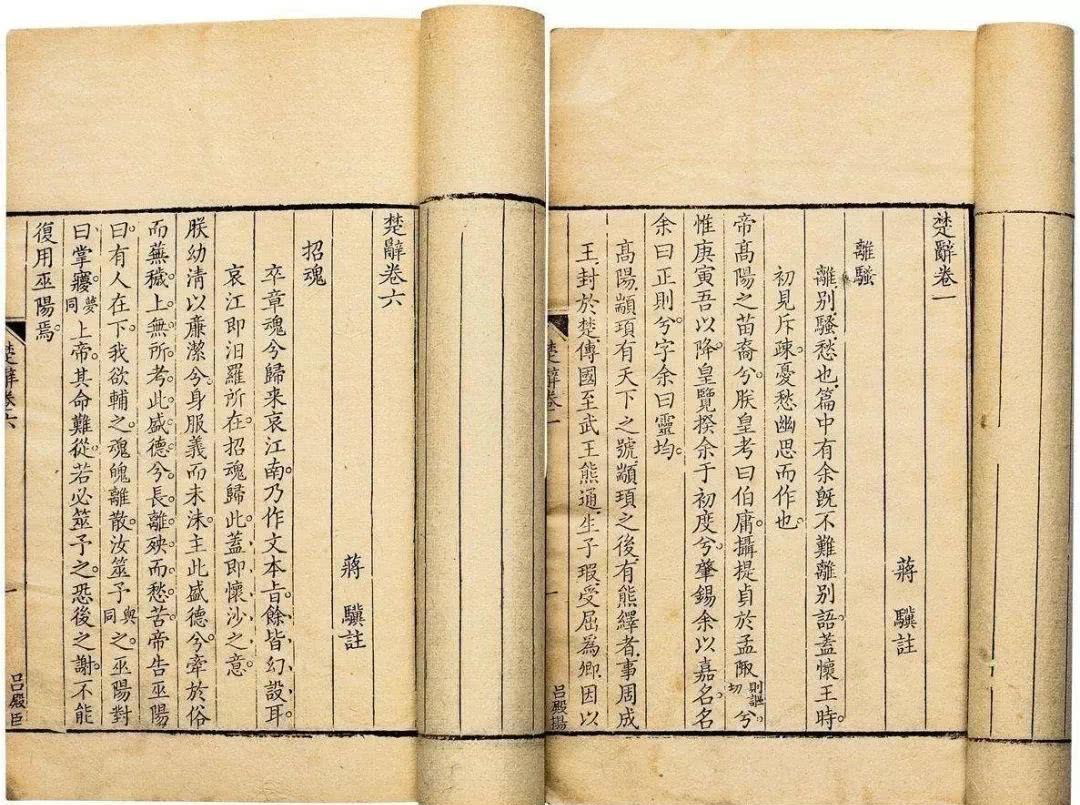 楚辭卷一
蔣 驥註
離騷
離别。騷愁也。篇中有余旣不難離别語。蓋懷王時。
初見斥疎。憂愁幽思而作也。
帝高陽之苗裔兮。朕皇考曰伯庸。攝提貞於孟陬則謳切兮。
惟庚寅吾以降。皇覽揆余于初度兮。肇錫余以嘉名。名
余曰正則兮。字余曰靈均。
高陽顓頊有天下之號。顓頊之後。有熊繹者。事周成
王。封於楚。傳國至武王熊通。生子瑕。受屈為卿。因以
楚辭卷一 一 吕殿揚
楚辭卷六
蔣 驥註
招魂
卒章魂兮歸来哀江南。乃作文本旨。餘皆幻設耳。
哀江即汨羅所在。招魂歸此。蓋即懷沙之意。
朕幼清以廉潔兮。身服義而未沬。主此盛德兮。牽於俗
而蕪穢。上無所考此盛德兮。長離殃而愁苦。帝告巫陽
曰。有人在下。我欲輔之。魂魄離散。汝筮予與同之。巫陽對
曰。掌㝱夢同。上帝其命難從。若必筮予之。恐後之謝。不能
復用巫陽焉。
楚辭卷六 一 吕殿臣